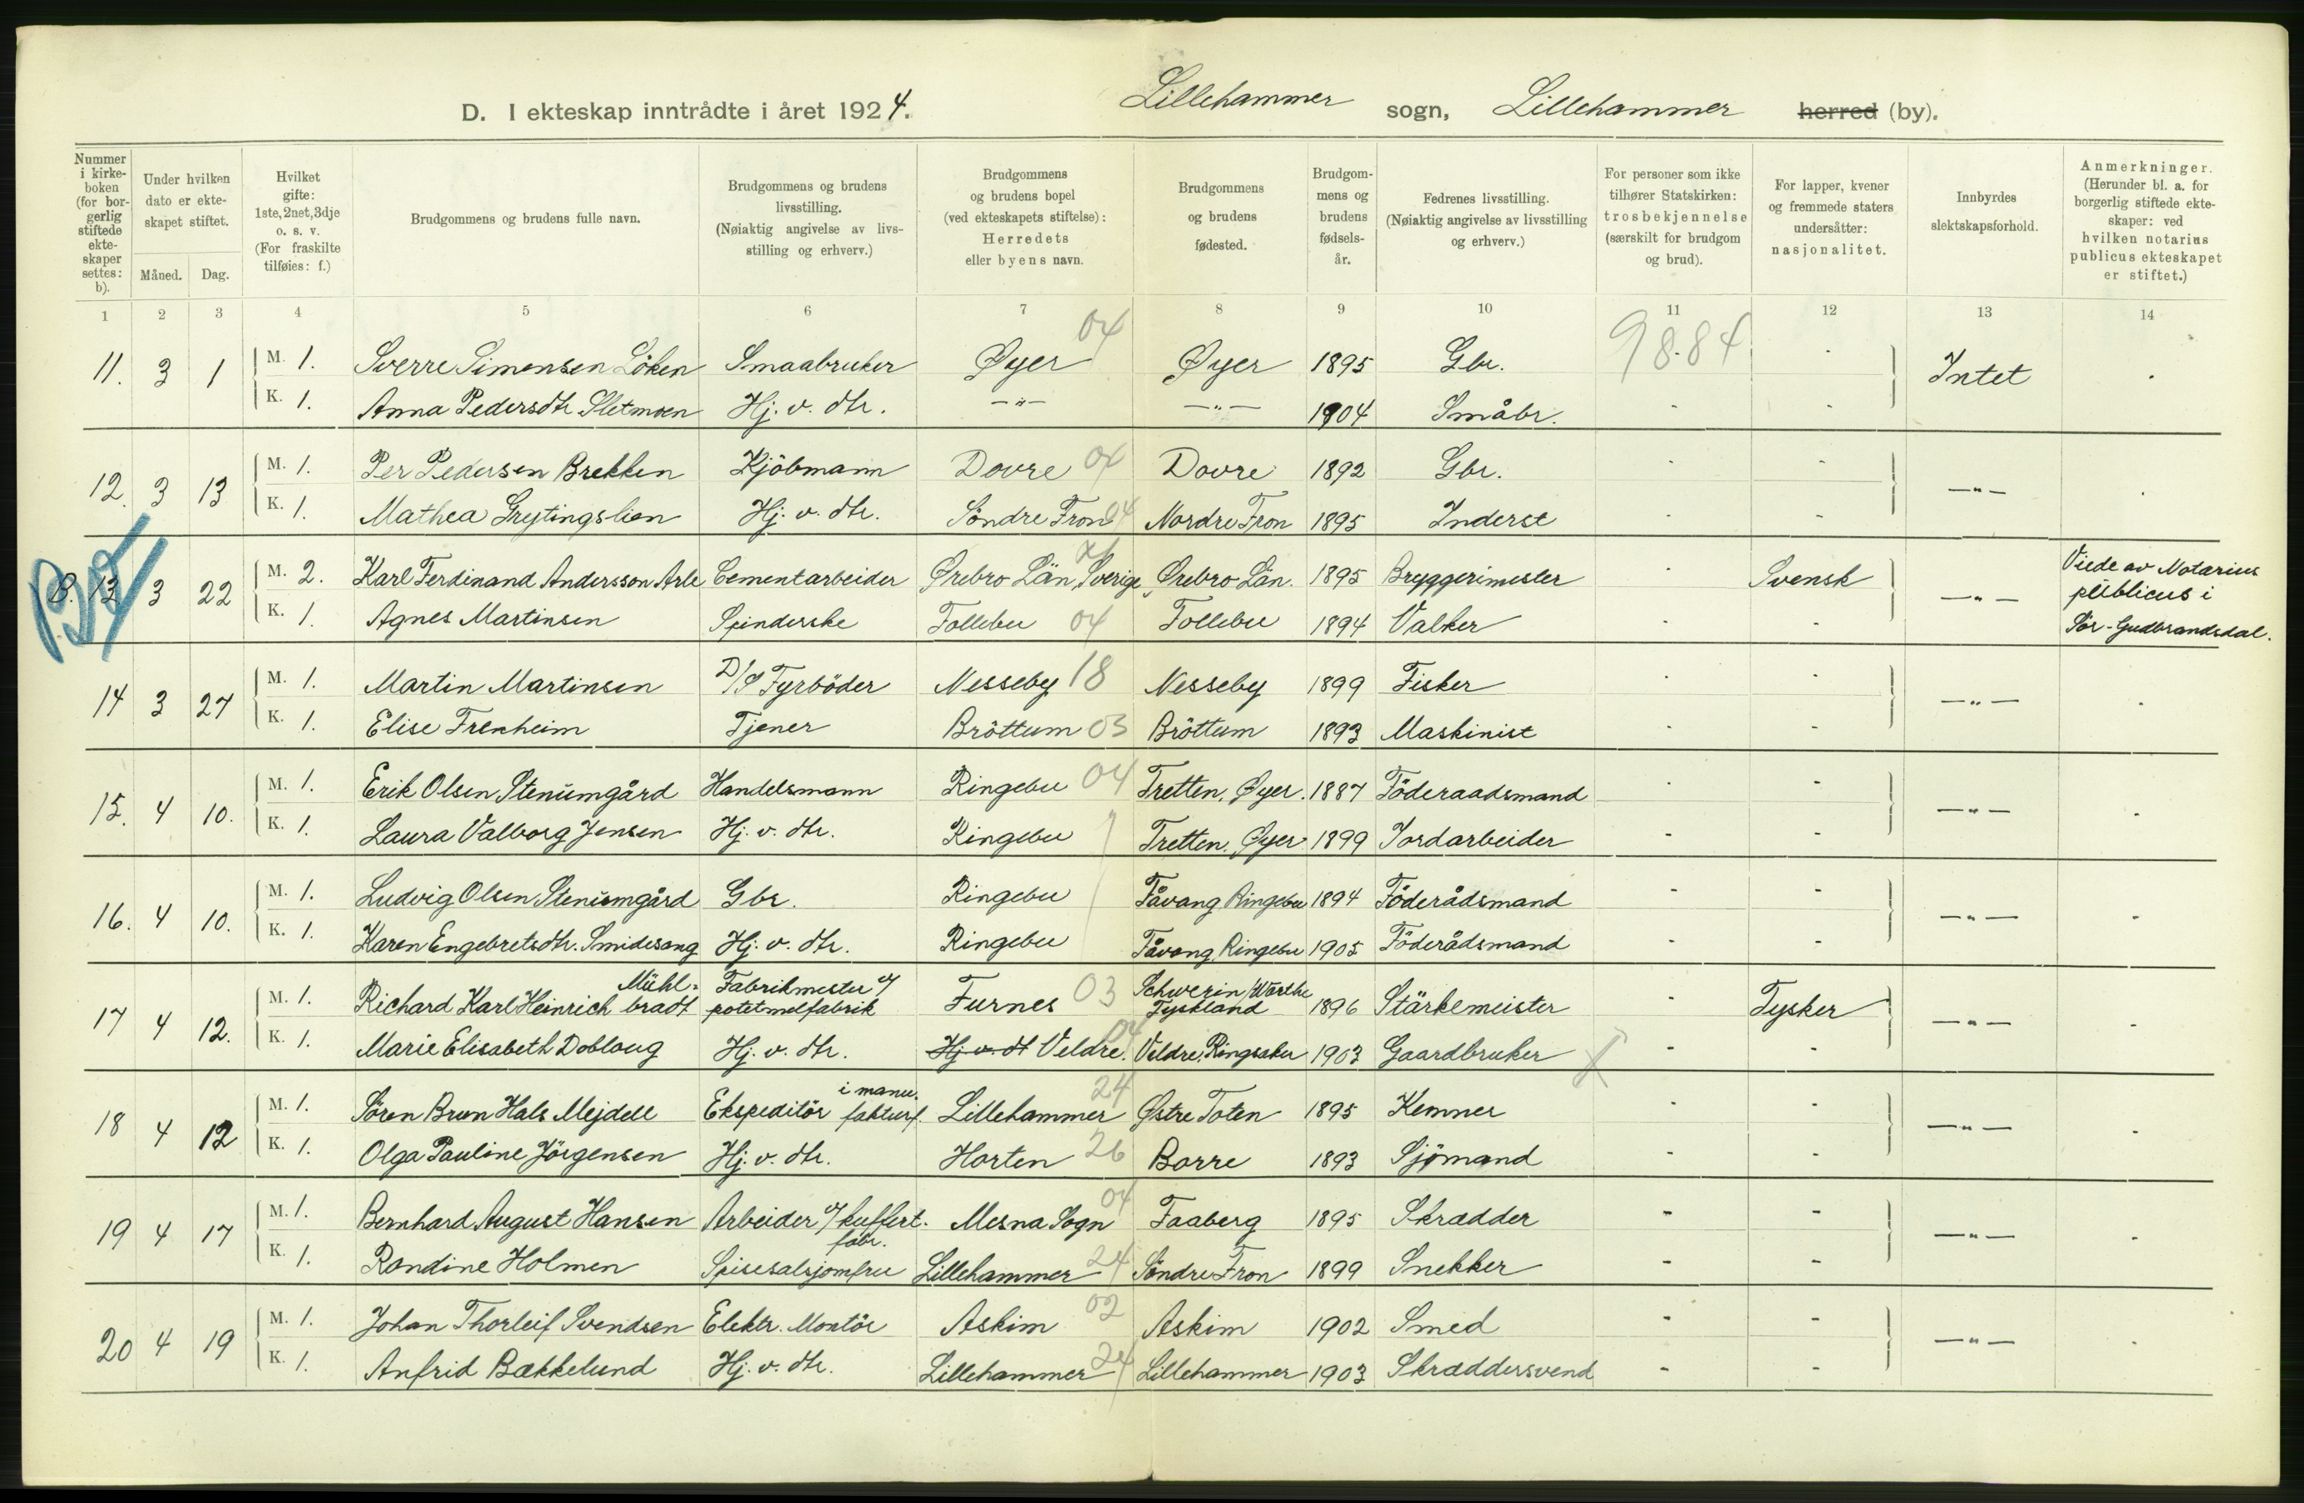 D. I ekteskap inntrådte i året 1924. Lillehammer sogn, Lillehammer herred (by).
Nummer i kirkeboken (for borgerlig stiftede ekteskaper settes: b).
Under hvilken dato er ekteskapet stiftet.
Måned. Dag.
Hvilket gifte: 1ste, 2net, 3dje o. s. v. (For fraskilte tilføies: f.)
Brudgommens og brudens fulle navn.
Brudgommens og brudens livsstilling. (Nøiaktig angivelse av livsstilling og erhverv.)
Brudgommens og brudens bopel (ved ekteskapets stiftelse): Herredets eller byens navn.
Brudgommens og brudens fødested.
Brudgommens og brudens fødselsår.
Fedrenes livsstilling. (Nøiaktig angivelse av livsstilling og erhverv.)
For personer som ikke tilhører Statskirken: trosbekjennelse (særskilt for brudgom og brud).
For lapper, kvener og fremmede staters undersåtter: nasjonalitet.
Innbyrdes slektskapsforhold.
Anmerkninger. (Herunder bl. a. for borgerlig stiftede ekteskaper: ved hvilken notarius publicus ekteskapet er stiftet.)
1 2 3 4 5 6 7 8 9 10 11 12 13 14
11. 3 1 M. 1. Sverre Simensen Löken Smaabruker Øyer 04 Øyer 1895 Gbr. 98.84 - Intet -
K. 1. Anna Pedersdtr. Sletmoen Hj. v. dtr. —„— —„— 1904 Småbr. - -
12. 3 13 M. 1. Per Pedersen Brekken Kjöbmann Dovre 04 Dovre 1892 Gbr. - - —„— -
K. 1. Mathea Grytingslien Hj. v. dtr. Söndre Fron 04 Nordre Fron 1895 Inderst - -
B. 13 3 22 M. 2. Karl Ferdinand Andersson Arle Cementarbeider Ørebro Län, Sverige Ørebro Län. 1895 Bryggerimester - Svensk —„— Viede av Notarius publicus i Sør-Gudbrandsdal.
K. 1. Agnes Martinsen Spinderske Follebu 04 Follebu 1894 Valker - -
14 3 27 M. 1. Martin Martinsen D/S Fyrböder Nesseby 18 Nesseby 1899 Fisker - - —„— -
K. 1. Elise Frenheim Tjener Bröttum 03 Bröttum 1893 Maskinist - -
15. 4 10. M. 1. Erik Olsen Stenumgård Handelsmann Ringebu 04 Tretten, Øyer. 1887 Föderaadsmand - - —„— -
K. 1. Laura Valborg Jensen Hj. v. dtr. Ringebu Tretten, Øyer 1899 Jordarbeider - -
16. 4 10. M. 1. Ludvig Olsen Stenumgård Gbr. Ringebu Fåvang Ringebu 1894 Föderådsmand - - —„— -
K. 1. Karen Engebretsdtr. Smidesang Hj. v. dtr. Ringebu Fåvang, Ringebu 1905 Föderådsmand - -
17 4 12. M. 1. Richard Karl Heinrich Mühlbradt Fabrikmester v/ potetmelfabrik Furnes 03 Schwerin/Warthe Tyskland 1896 Stärkemeister - Tysker —„— -
K. 1. Marie Elisabeth Dobloug Hj. v. dtr. Hj. v. dt Veldre. 04 Veldre, Ringsaker 1903 Gaardbruker - -
18 4 12 M. 1. Sören Brun Hals Mejdell Ekspeditör i manufakturf. Lillehammer 24 Østre Toten 1895 Kemner - - —„— -
K. 1. Olga Pauline Jörgensen Hj. v. dtr. Horten 26 Borre 1893 Sjömand - -
19 4 17 M. 1. Bernhard August Hansen Arbeider v/ kuffertfabr. Mesna Sogn 04 Faaberg 1895 Skrædder - - —„— -
K. 1. Randine Holmen Spisesalsjomfru Lillehammer 24 Söndre Fron 1899 Snekker - -
20 4 19 M. 1. Johan Thorleif Svendsen Elektr. Montör Askim 02 Askim 1902 Smed - - —„— -
K. 1. Anfrid Bækkelund Hj. v. dtr. Lillehammer 24 Lillehammer 1903 Skræddersvend - -